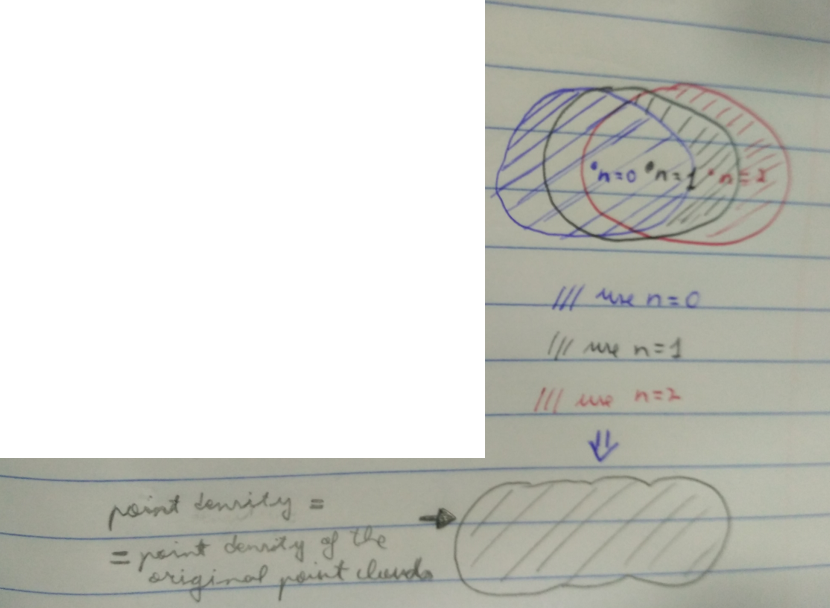 n=0 n=1 n=2
/// use n=0
/// use n=1
/// use n=2
point density =
= point density of the
original point clouds